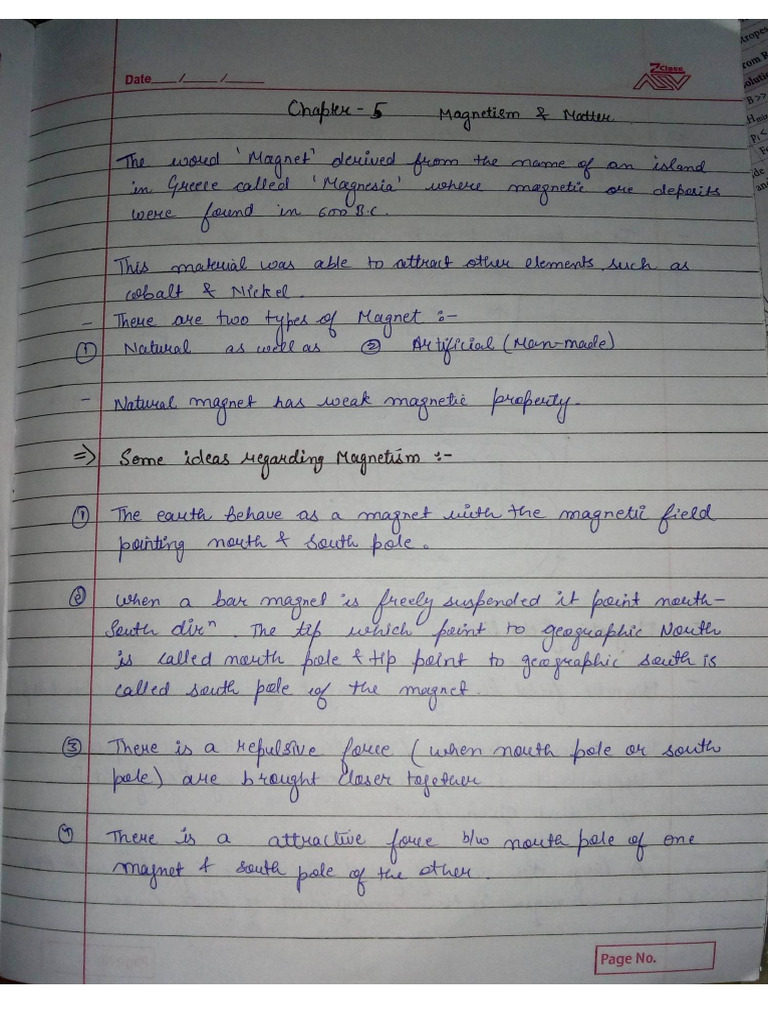 Date___/___/___
2class
Chapter - 5 Magnetism & Matter
The word 'Magnet' derived from the name of an island
in Greece called 'Magnesia' where magnetic ore deposits
were found in 600 B.C.
This material was able to attract other elements such as
cobalt & Nickel.
- There are two types of Magnet :-
① Natural as well as ② Artificial (Man-made)
- Natural magnet has weak magnetic property.
⇒ Some ideas regarding Magnetism :-
① The earth behave as a magnet with the magnetic field
pointing north & south pole.
② When a bar magnet is freely suspended it point north-
South dirⁿ. The tip which point to geographic North
is called north pole & tip point to geographic south is
called south pole of the magnet.
③ There is a repulsive force (when north pole or south
pole) are brought closer together
④ There is a attractive force b/w north pole of one
magnet & south pole of the other.
Page No.